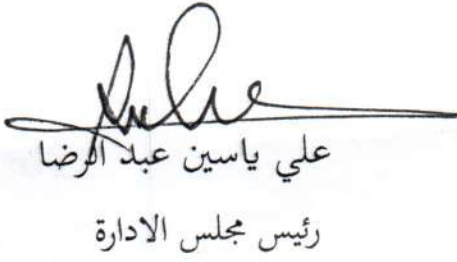 علي ياسين عبد الرضا
رئيس مجلس الادارة